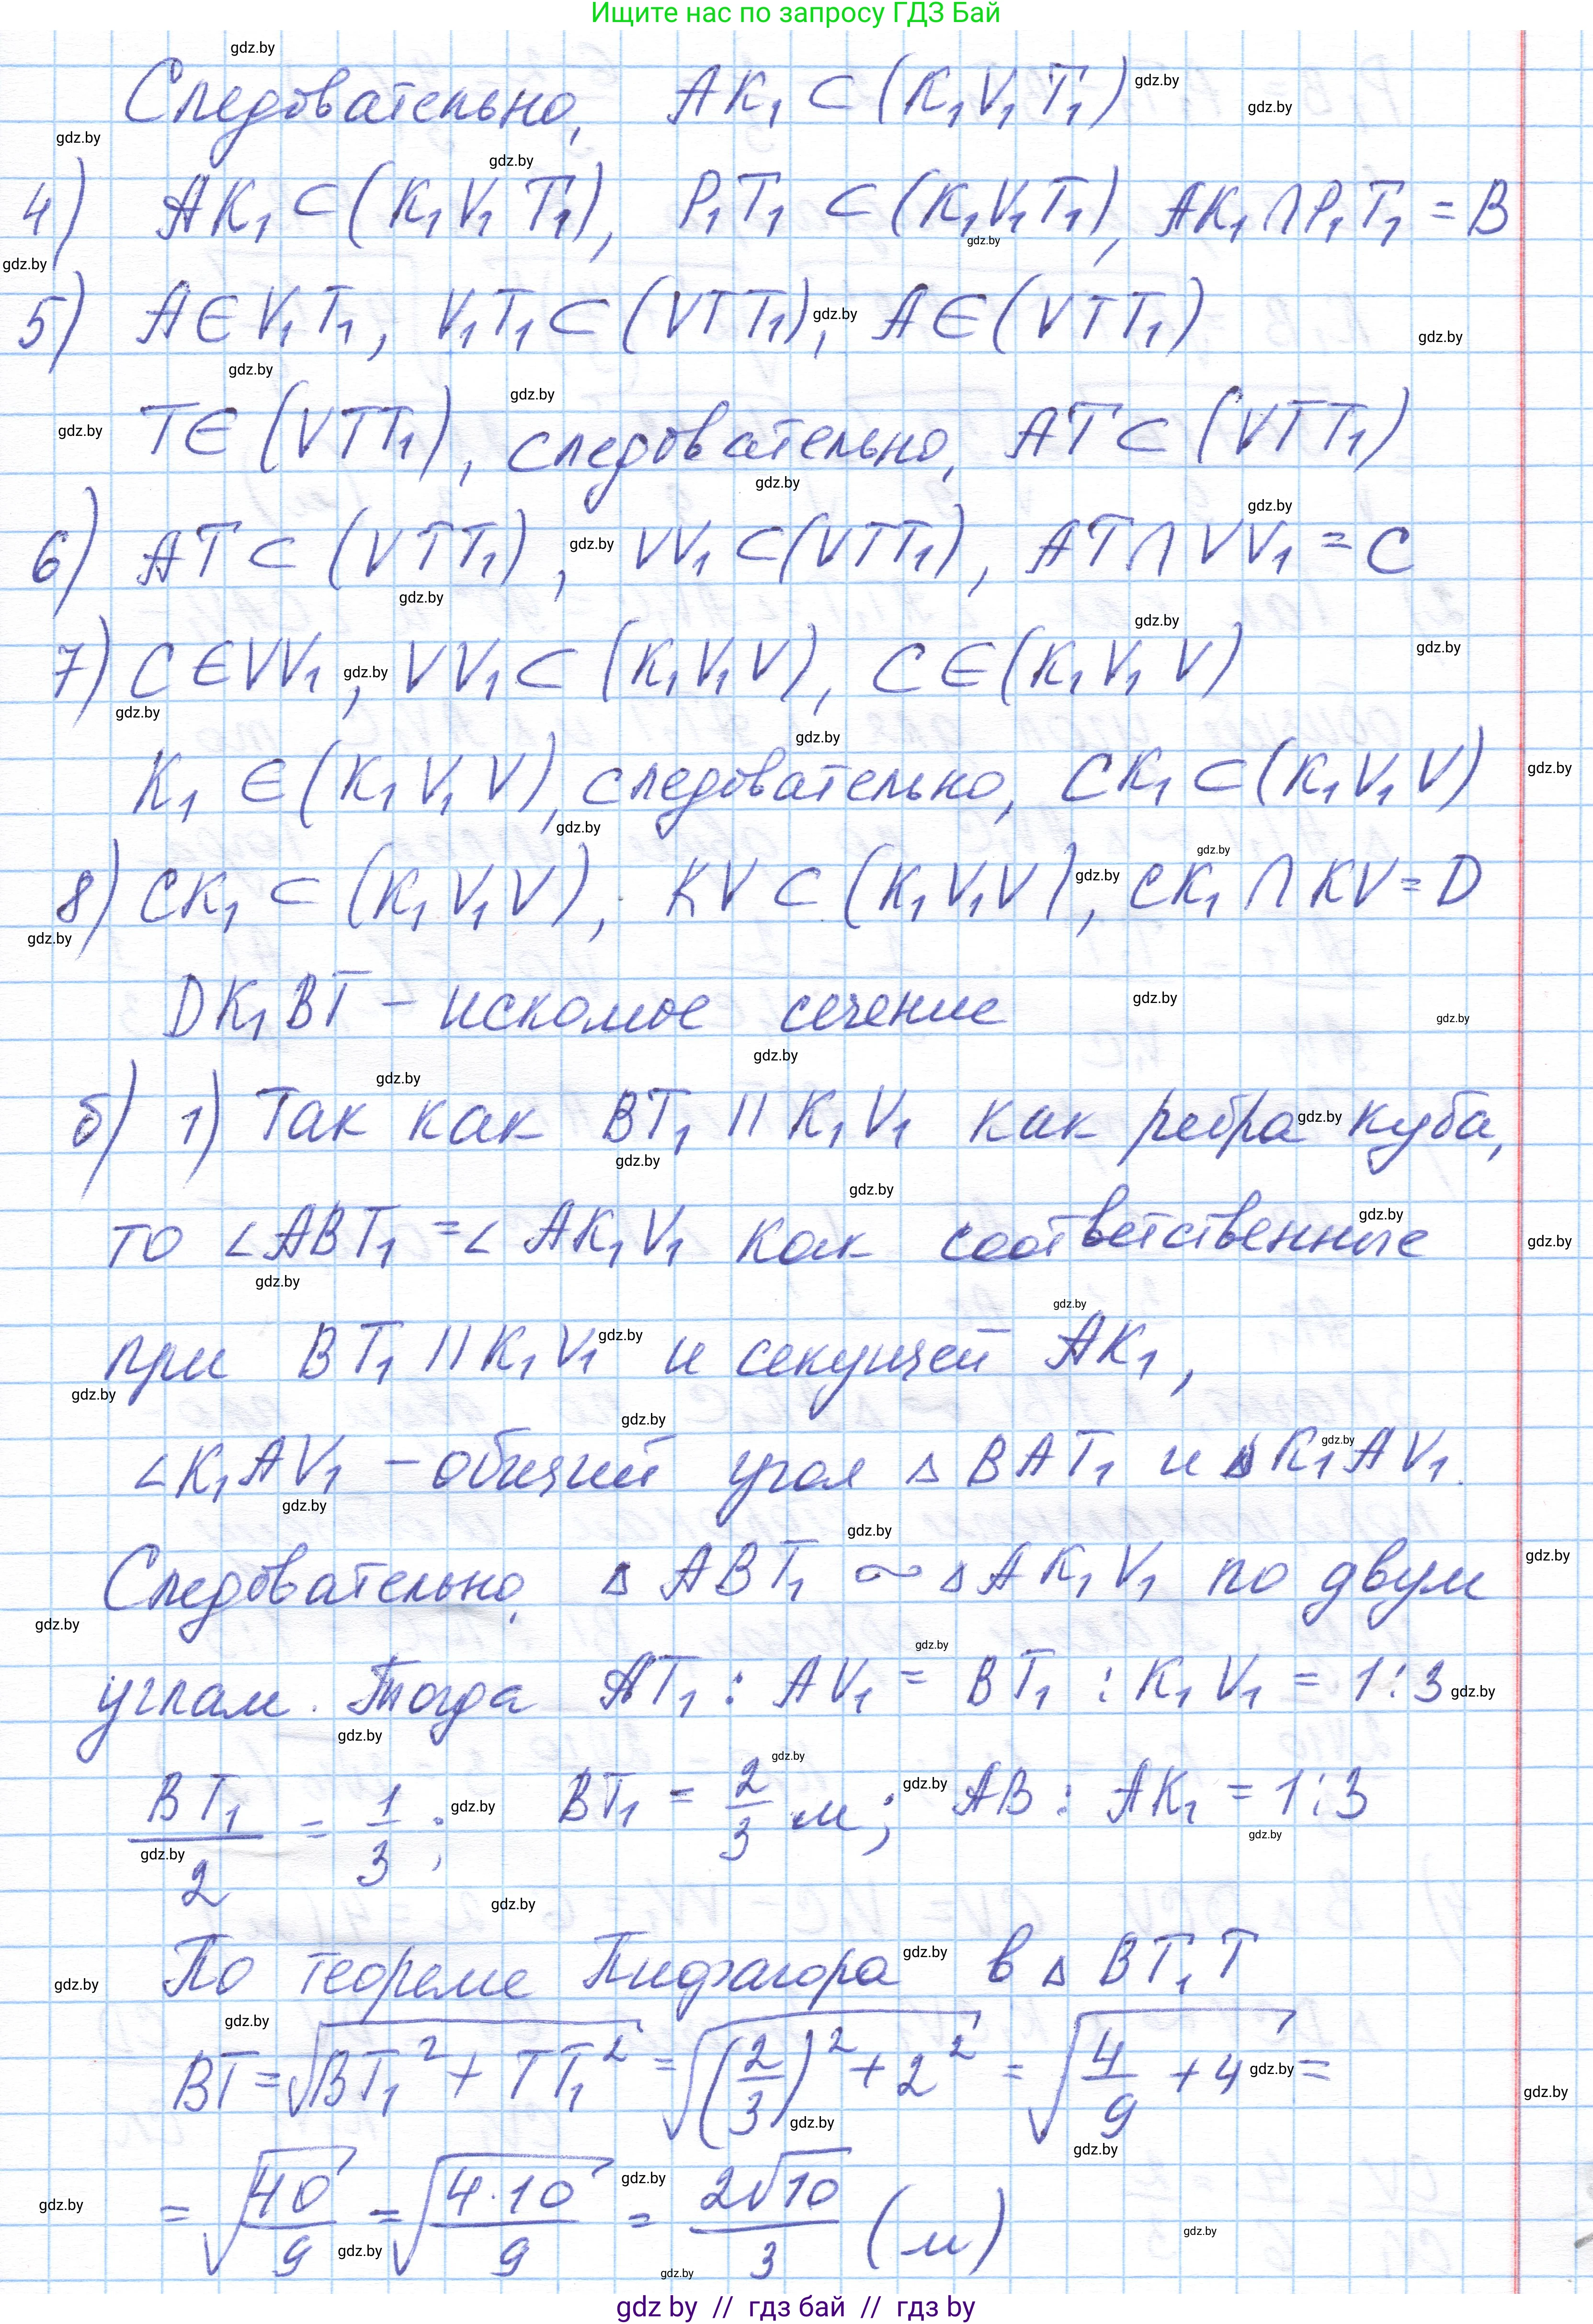 Ищите нас по запросу ГДЗ Бай
Следовательно, AK₁ ⊂ (K₁V₁T₁)
4) AK₁ ⊂ (K₁V₁T₁), P₁T₁ ⊂ (K₁V₁T₁), AK₁ ∩ P₁T₁ = B
5) A ∈ V₁T₁, V₁T₁ ⊂ (VTT₁), A ∈ (VTT₁)
T ∈ (VTT₁), следовательно, AT ⊂ (VTT₁)
6) AT ⊂ (VTT₁), VV₁ ⊂ (VTT₁), AT ∩ VV₁ = C
7) C ∈ VV₁, VV₁ ⊂ (K₁V₁V), C ∈ (K₁V₁V)
K₁ ∈ (K₁V₁V), следовательно, CK₁ ⊂ (K₁V₁V)
8) CK₁ ⊂ (K₁V₁V), KV ⊂ (K₁V₁V), CK₁ ∩ KV = D
DK₁BT – искомое сечение
б) 1) Так как BT₁ || K₁V₁ как ребра куба,
то ∠ABT₁ = ∠AK₁V₁ как соответственные
при BT₁ || K₁V₁ и секущей AK₁,
∠K₁AV₁ – общий угол △BAT₁ и △K₁AV₁.
Следовательно, △ABT₁ ∾ △AK₁V₁ по двум
углам. Тогда AT₁ : AV₁ = BT₁ : K₁V₁ = 1:3
BT₁/2 = 1/3; BT₁ = 2/3 м; AB : AK₁ = 1:3
По теореме Пифагора в △BT₁T
BT = √(BT₁² + TT₁²) = √((2/3)² + 2²) = √(4/9 + 4) =
= √(40/9) = √(4·10/9) = 2√10/3 (м)
gdz by // гдз бай // гдз by